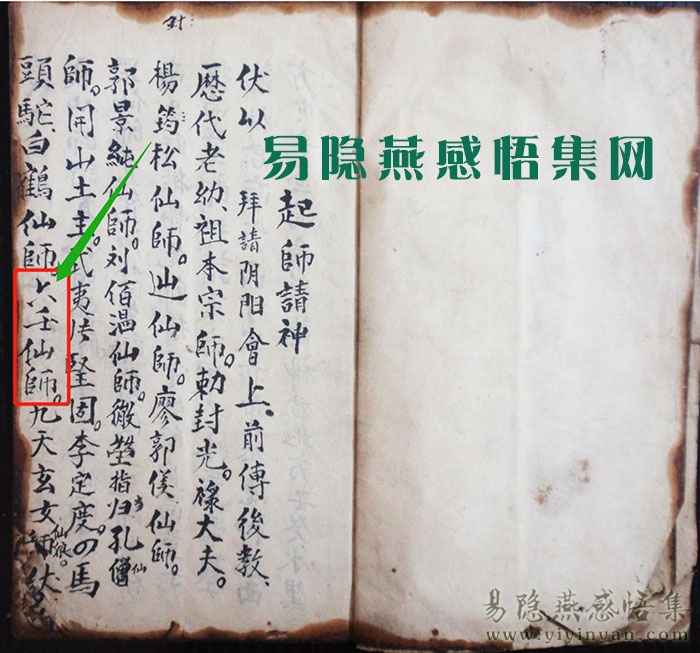 起師請神
伏以 拜請阴阳會上、前傳後教、
歷代老幼、祖本宗師。勅封光。祿大夫。
楊筠松仙師。仙師。廖郭僕、仙師。
郭景純仙師。刘佰温仙師。指归孔仙
師。開山土主。武夷法堅固。李定度。の馬
頭駝、白鶴仙師。六壬仙師。九天玄女
仙娘。伏
易隐燕感悟集网
易隐燕感悟集
www.yiyinyan.com